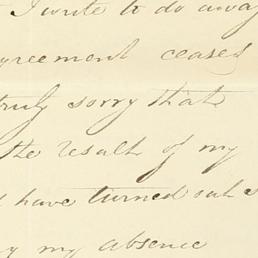 I write to do away
greement ceased
truly sorry that
the result of my
have turned out
my absence